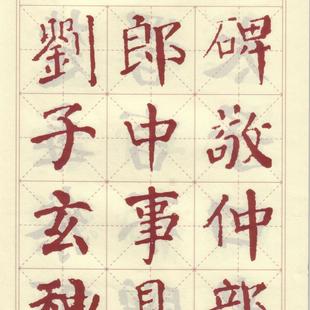 碑敬仲部
郎中事
劉子玄